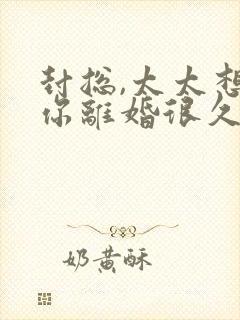 封总,太太想
你离婚很久
奶黄酥